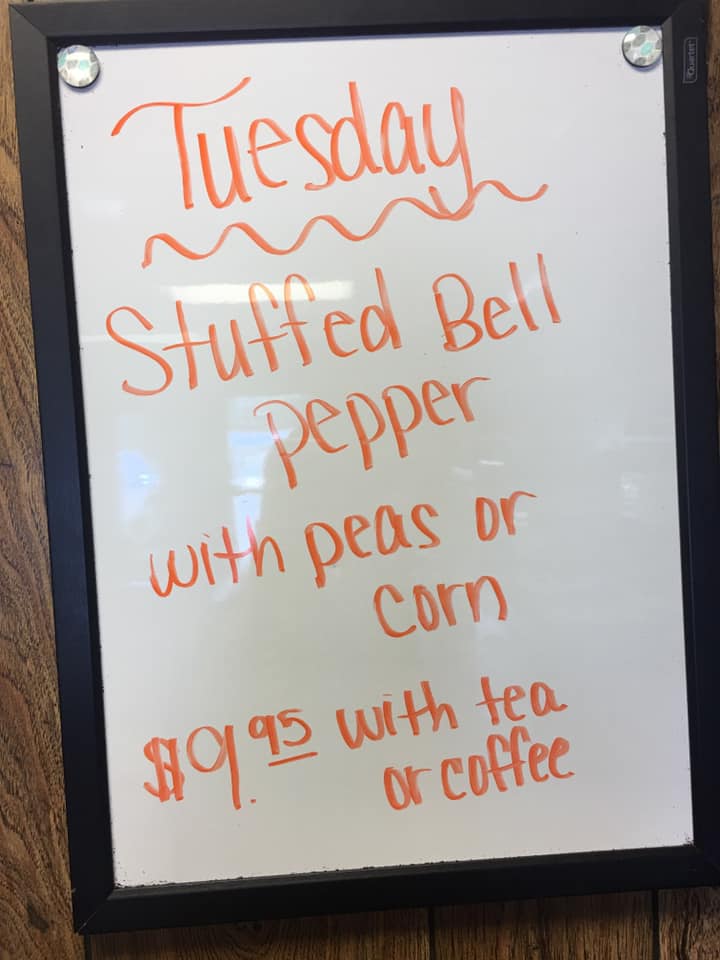 Tuesday
Stuffed Bell
pepper
with peas or
corn
$9.95 with tea
or coffee
Quartet